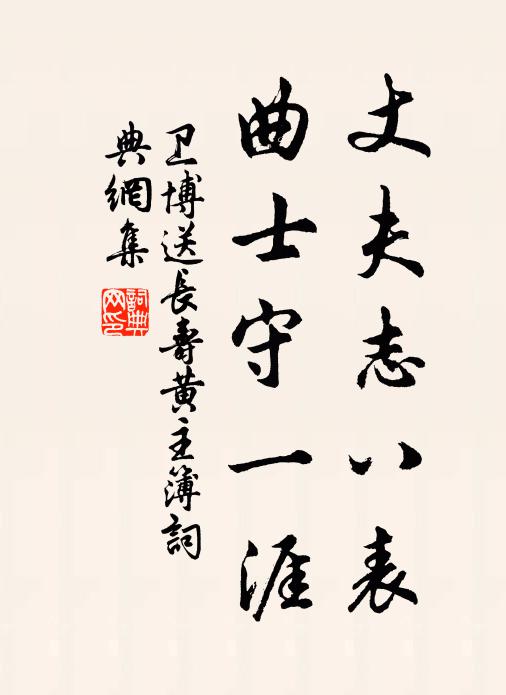 丈夫志八表
曲士守一涯
卫博送長壽黄主簿詞
典網集
詞典
网印